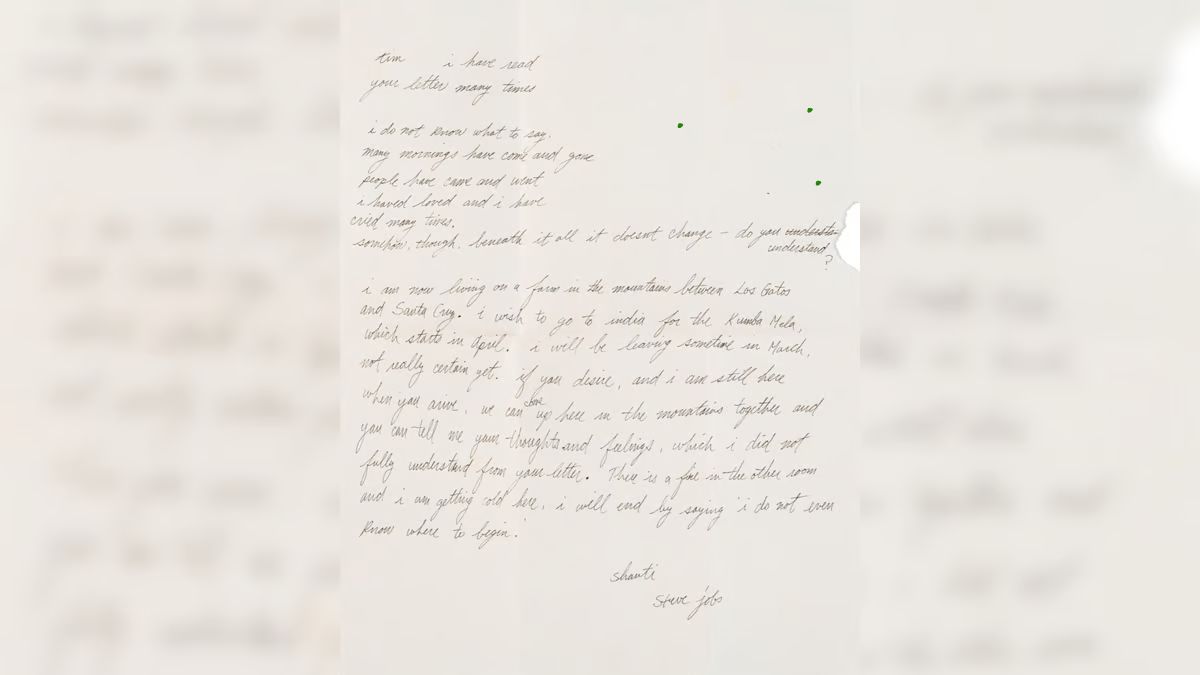 tim i have read
your letter many times
i do not know what to say.
many mornings have come and gone
people have came and went
i haved loved and i have
cried many times.
somehow, though, beneath it all it doesnt change - do you understa
understand
?
i am now living on a farm in the mountains between Los Gatos
and Santa Cruz. i wish to go to india for the Kumba Mela,
which starts in April. i will be leaving sometime in March,
not really certain yet. if you desire, and i am still here
when you arive, we can come up here in the mountains together and
you can tell me your thoughts and feelings, which i did not
fully understand from your letter. There is a fire in the other room
and i am getting cold here. i will end by saying 'i do not even
know where to begin.'
shanti
steve jobs